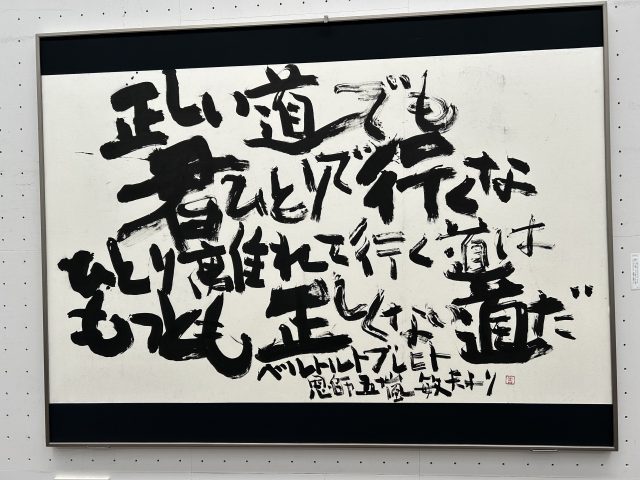 正しい道でも
君ひとりで行くな
ひとり離れて行く道は
もっとも正しくない道だ
ベルトルトブレヒト
恩師五嵐敏夫ヨリ